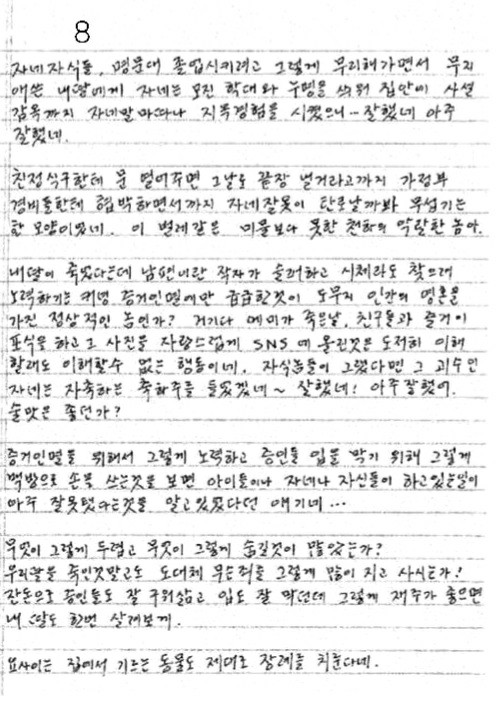 8
자네자식들, 명문대 졸업시키려고 그렇게 무리해가면서 무지
애쓴 내딸에게 자네는 모진 학대와 누명을 씌워 집안에 사설
감옥까지 자네말마따나 지옥경험을 시켰으니... 잘했네 아주
잘했네.
친정식구한테 문 열어주면 그날로 끝장 낼거라고까지 가정부
경비들한테 협박하면서까지 자네잘못이 탄로날까봐 무섭기는
한 모양이었네. 이 벌레같은 미물보다 못한 천하의 악랄한 놈아.
내딸이 죽었다는데 남편이란 작자가 슬퍼하고 시체라도 찾으려
노력하기는 커녕 증거인멸에만 급급한것이 도무지 인간의 영혼을
가진 정상적인 놈인가? 거기다 에미가 죽은날, 친구들과 즐거이
포식을 하고 그 사진을 자랑스럽게 SNS에 올린것은 도저히 이해
할래도 이해할수 없는 행동이네. 자식놈들이 그랬다면 그 괴수인
자네는 자축하는 축하주를 들었겠네~ 잘했네! 아주잘했어.
술맛은 좋던가?
증거인멸을 위해서 그렇게 노력하고 증인들 입을 막기 위해 그렇게
백방으로 손을 쓰는것을 보면 아이들이나 자네나 자신들이 하고있는일이
아주 잘못됐다는것을 알고있었다던 얘기네...
무엇이 그렇게 두렵고 무엇이 그렇게 숨길것이 많았는가?
우리딸을 죽인것말고도 도대체 무슨죄를 그렇게 많이 지고 사시는가?
잔돈으로 증인들도 잘 구워삶고 입도 잘 막던데 그렇게 재주가 좋으면
내 딸도 한번 살려보게.
요사이는 집에서 기르는 동물도 제대로 장례를 치룬다네.